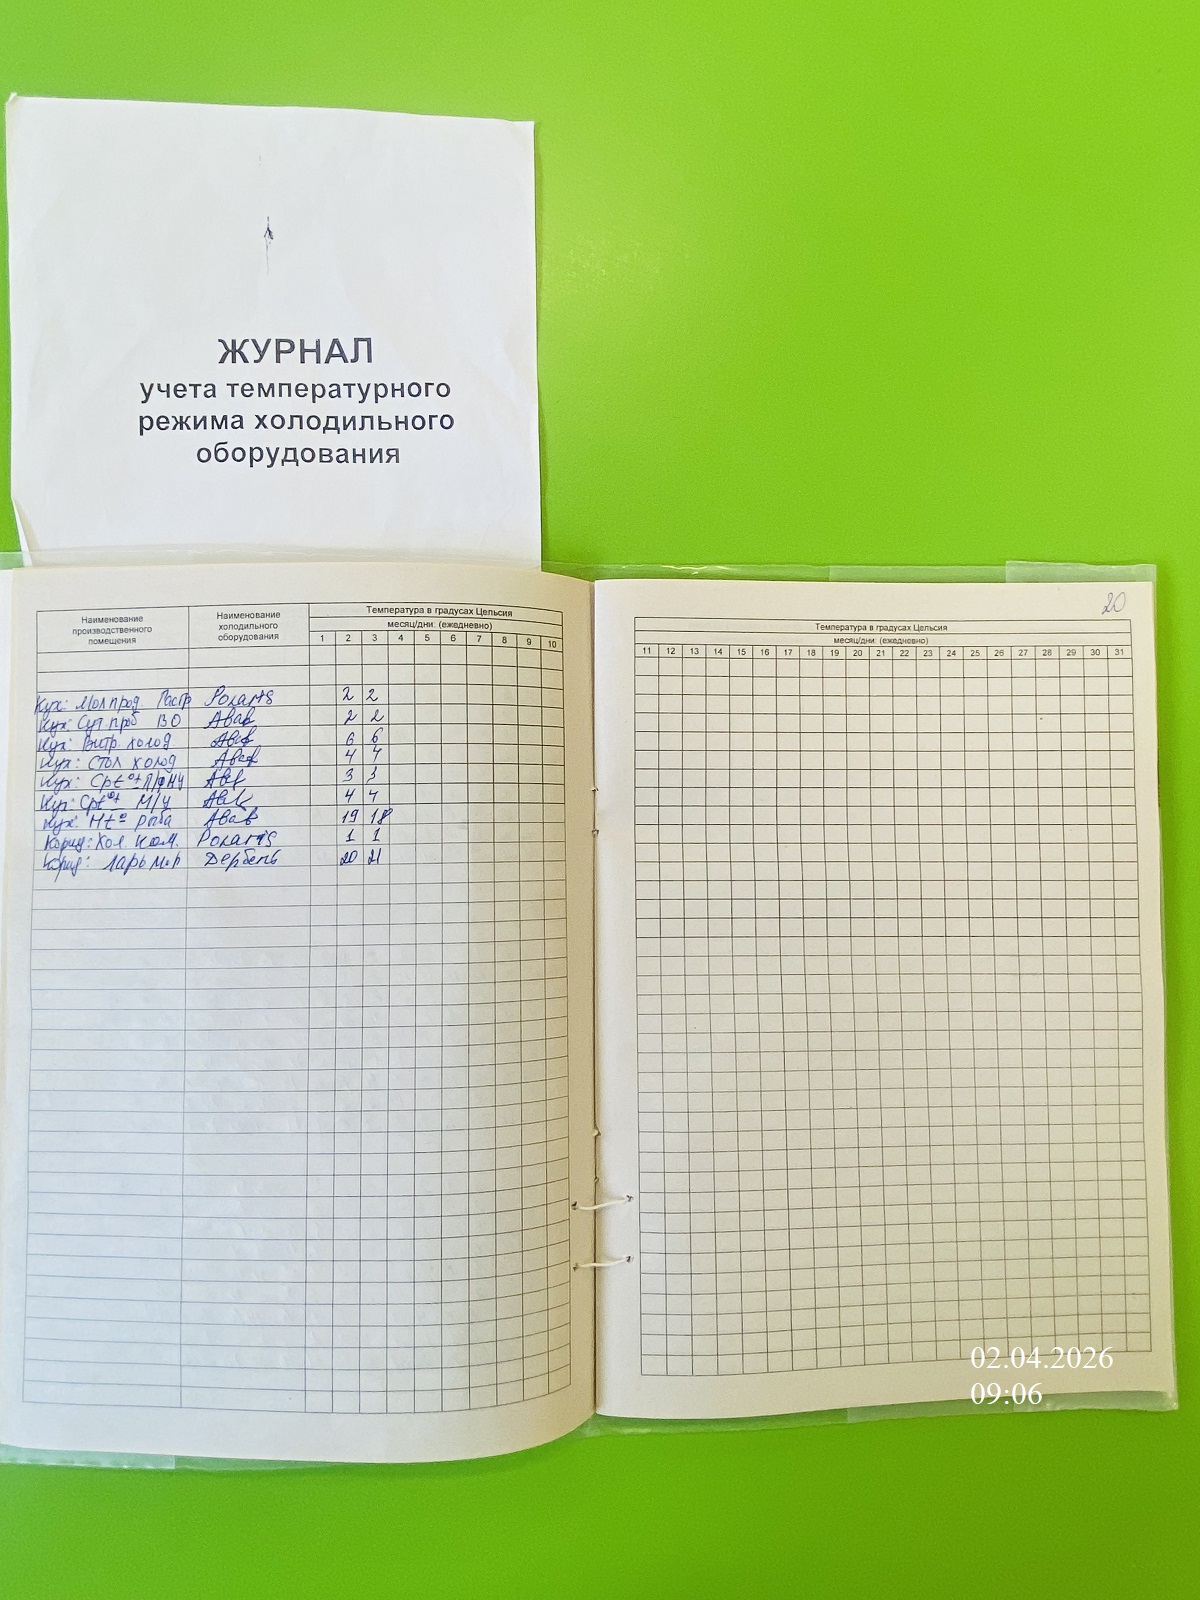 ЖУРНАЛ
учета температурного
режима холодильного
оборудования
Наименование производственного помещения Наименование холодильного оборудования Температура в градусах Цельсия
месяц/дни: (ежедневно)
1 2 3 4 5 6 7 8 9 10
Кух: Мол прод. Гастр Polaris 2 2
Кух: Сут. проб ВО Абат 2 2
Кух: Витр. холод Абат 6 6
Кух: Стол холод Абат 4 4
Кух: Ср t° П/ф Абат 3 3
Кух: Ср t° М/ц Абат 4 4
Кух: Н t° рыба Абат 19 18
Корид: Хол. ком. Polaris 1 1
Корид: Ларь Дербень 20 21
20
Температура в градусах Цельсия
месяц/дни: (ежедневно)
11 12 13 14 15 16 17 18 19 20 21 22 23 24 25 26 27 28 29 30 31
02.04.2026
09:06